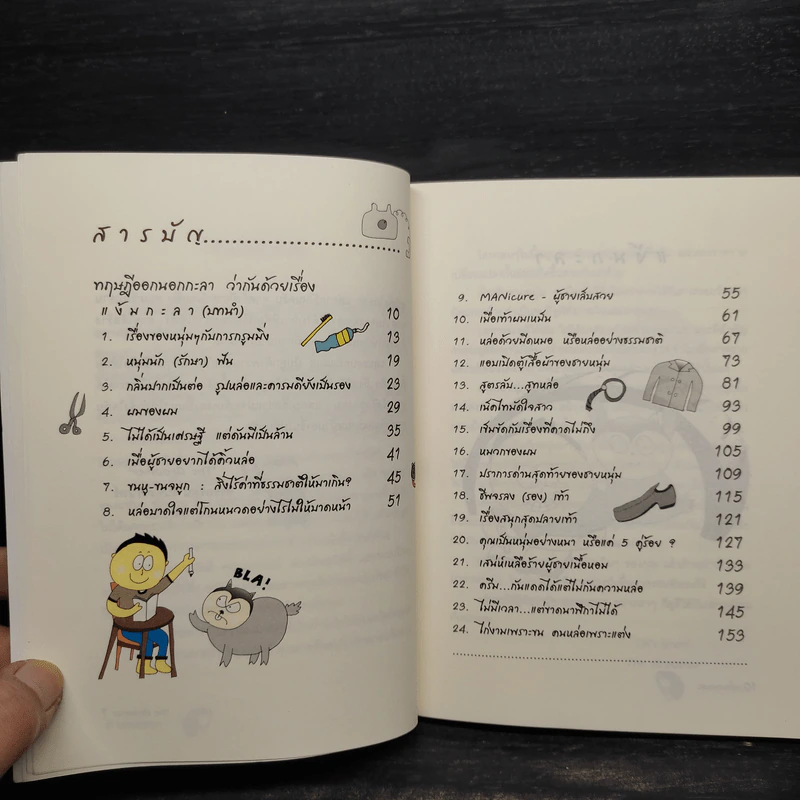 สารบัญ
ทฤษฎีออกนอกกะลา ว่ากันด้วยเรื่อง
แง้มกะลา (บทนำ) 10
1. เรื่องของหนุ่มๆกับการกรูมมิ่ง 13
2. หนุ่มนัก (รักษา) ฟัน 19
3. กลิ่นปากเป็นต่อ รูปหล่อและคารมดียังเป็นรอง 23
4. ผมของผม 29
5. ไม่ได้เป็นเศรษฐี แต่ดันมีเป็นล้าน 35
6. เมื่อผู้ชายอยากได้คิ้วหล่อ 41
7. ขนหู-ขนจมูก : สิ่งไร้ค่าที่ธรรมชาติให้มาเกิน? 45
8. หล่อบาดใจแต่โกนหนวดอย่างไรไม่ให้บาดหน้า 51
BLA!
9. MANicure - ผู้ชายเล็บสวย 55
10. เมื่อเท้าผมเหม็น 61
11. หล่อด้วยมีดหมอ หรือหล่ออย่างธรรมชาติ 67
12. แอบเปิดตู้เสื้อผ้าของชายหนุ่ม 73
13. สูตรลับ...สูทหล่อ 81
14. เน็คไทมัดใจสาว 93
15. เข็มขัดกับเรื่องที่คาดไม่ถึง 99
16. หมวกของผม 105
17. ปราการด่านสุดท้ายของชายหนุ่ม 109
18. ชีพจรลง (รอง) เท้า 115
19. เรื่องสนุกสุดปลายเท้า 121
20. คุณเป็นหนุ่มอย่างหนา หรือแค่ 5 คู่ร้อย ? 127
21. เสน่ห์เหลือร้ายผู้ชายเนื้อหอม 133
22. ครีม...กันแดดได้แต่ไม่กันความหล่อ 139
23. ไม่มีเวลา...แต่ขาดนาฬิกาไม่ได้ 145
24. ไก่งามเพราะขน คนหล่อเพราะแต่ง 153